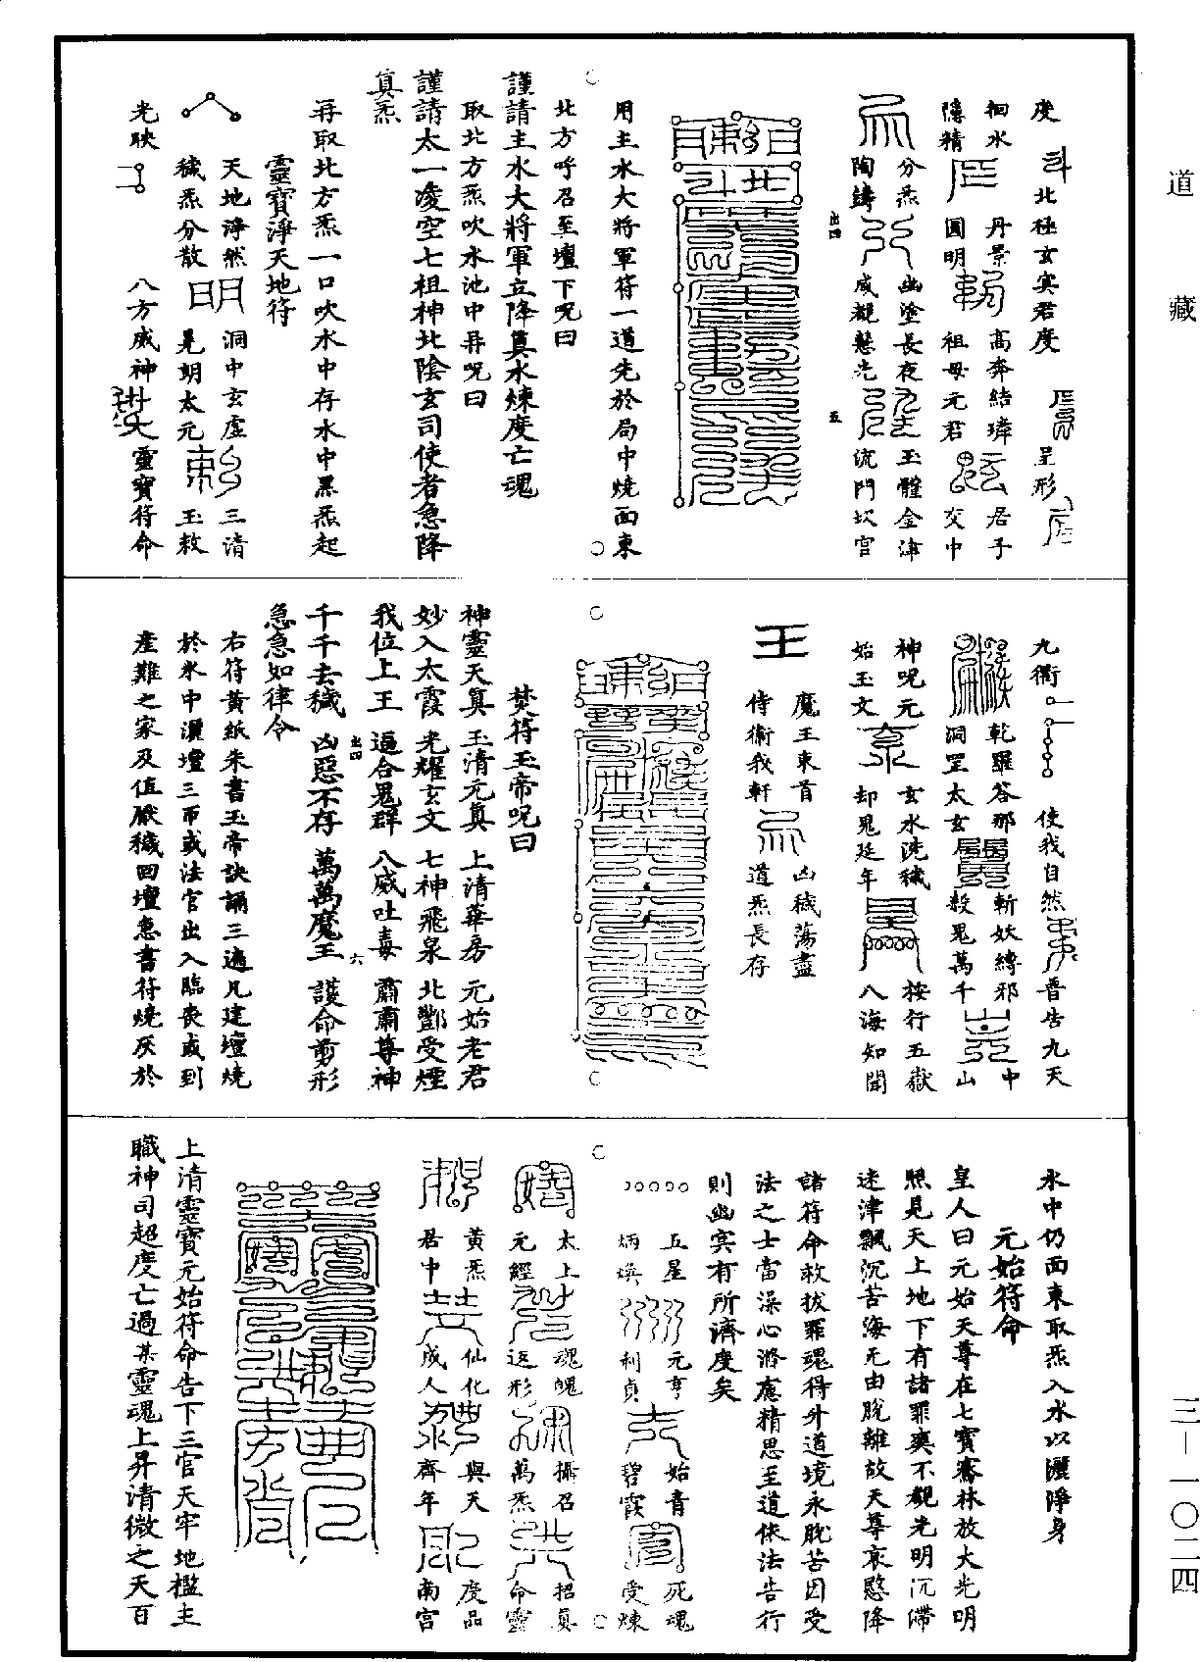 道藏
三—一〇二四
度 北極玄冥君度 呈形
徊水 丹景 高奔結璘 居子
隱精 圓明 祖母元君 交中
分炁 幽塗長夜 玉體金津
陶鑄 威覩慧光 流門坎宮
用主水大將軍符一道先於局中燒面東
北方呼召至壇下呪曰
謹請主水大將軍立降真水煉度亡魂
取北方炁吹水池中再呪曰
謹請太一凌空七祖神北陰玄司使者急降
真炁
再取北方炁一口吹水中存水中黑炁起
靈寶淨天地符
天地淨然 洞中玄虛 三清
穢炁分散 晃朗太元 玉敕
光映 八方威神 靈寶符命
九衢 使我自然 普告九天
乾羅答那 斬妖縛邪 中
洞罡太玄 殺鬼萬千 山
神呪元 玄水洗穢 按行五嶽
始玉文 却鬼延年 八海知聞
王 魔王束首 凶穢蕩盡
侍衛我軒 道炁長存
焚符玉帝呪曰
神靈天真 玉清元真 上清華房 元始老君
妙入太霞 光耀玄文 七神飛泉 北酆受煙
我位上王 逼合鬼群 八威吐毒 肅肅尊神
千千去穢 凶惡不存 萬萬魔王 護命剪形
急急如律令
右符黃紙朱書玉帝訣誦三遍凡建壇燒
於水中灑壇三帀或法官出入臨喪或到
產難之家及值厭穢回壇急書符燒灰於
水中仍面東取炁入水以灑淨身
元始符命
皇人曰元始天尊在七寶騫林放大光明
照見天上地下有諸罪爽不覩光明沉滯
迷津飄沉苦海无由脫離故天尊哀愍降
諸符命敕拔罪魂得升道境永脫苦因受
法之士當澡心滌慮精思至道依法告行
則幽冥有所濟度矣
五星 元亨 始青 死魂
炳煥 利貞 碧霞 受煉
太上 魂魄 攝召 招真
元經 返形 萬炁 命靈
黃炁 仙化 與天 度品
君中 成人 齊年 南宮
上清靈寶元始符命告下三官天牢地檻主
職神司超度亡過某靈魂上昇清微之天百